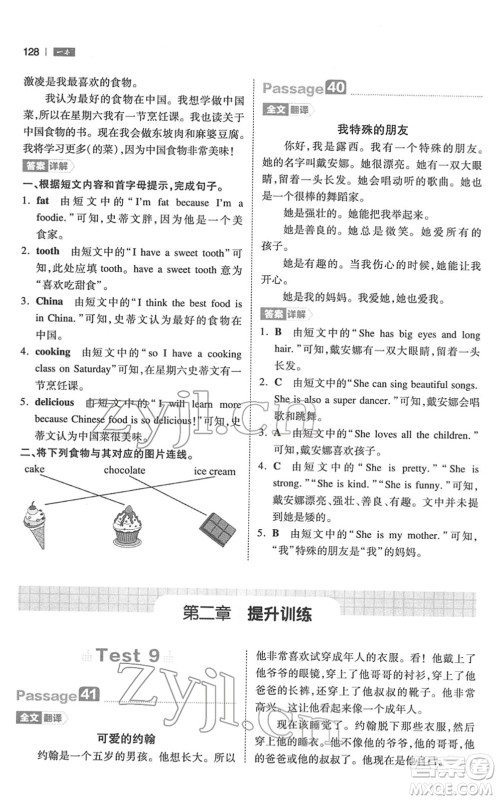 128 一本
激凌是我最喜欢的食物。
我认为最好的食物在中国。我喜欢中国
菜,所以我在星期六有一节烹饪课。我阅读关
于中国食物的书。我会做东坡肉和麻婆豆腐。
我将学习更多(的菜),因为中国食物非常美味!
答案 详解
一、根据短文内容和首字母提示,完成句子。
1. fat 由短文中的“I'm fat because I'm a
foodie.”可知,史蒂文胖,因为他是一个美
食家。
2. tooth 由短文中的“I have a sweet tooth”可
知,此处应填 tooth。have a sweet tooth 意为
“喜欢吃甜食”。
3. China 由短文中的“I think the best food is
in China.”可知,史蒂文认为最好的食物在
中国。
4. cooking 由短文中的“so I have a cooking
class on Saturday”可知,在星期六史蒂文有一
节烹饪课。
5. delicious 由短文中的“I will learn more
because Chinese food is so delicious!”可知,史
蒂文认为中国菜很美味。
二、将下列食物与其对应的图片连线。
cake chocolate ice cream
Passage 40
全文 翻译
我特殊的朋友
你们好!我是露西。我有一个特殊的朋友。
她的名字叫戴安娜。她很漂亮。她有一双大眼
睛,留着一头长发。
她会唱动听的歌曲。她也是一个很棒的舞蹈家。
她是强壮的。她可以把我举起来。
她是善良的。她总是微笑。她喜欢所有的
孩子。
她是有趣的。当我伤心的时候,她会让我
开心。
她是我的妈妈。我爱她,她也爱我。
答案 详解
1. B 由短文中的“She has big eyes and long
hair.”可知,戴安娜有一双大眼睛,留着一
头长发。
2. C 由短文中的“She can sing beautiful songs.
She is also a super dancer.”可知,戴安娜会唱
歌和跳舞。
3. C 由短文中的“She loves all the children.”可知,
戴安娜喜欢孩子。
4. C 由短文中的“She is pretty.”“She is
strong.”“She is kind.”“She is funny.”可知,
戴安娜漂亮、强壮、善良、有趣。短文并未提到
她害羞。
5. B 由短文中的“She is my mother.”可知,
“我”特殊的朋友是“我”的妈妈。
第二章 提升训练
Test 9
Passage 41
全文 翻译
可爱的约翰
约翰是一个五岁的男孩。他想长大。所以
他非常喜欢试穿成年人的衣服。他戴上了他爷
爷的眼镜,穿上了他哥哥的衬衫,穿上了他
爸爸的外套,还穿上了他爸爸的靴子。他非常
高兴,因为他看起来像一个成年人。
现在该睡觉了,约翰不得不脱下所有的
zyjl.cn
zyjl.cn
答案圈
MXQE.COM